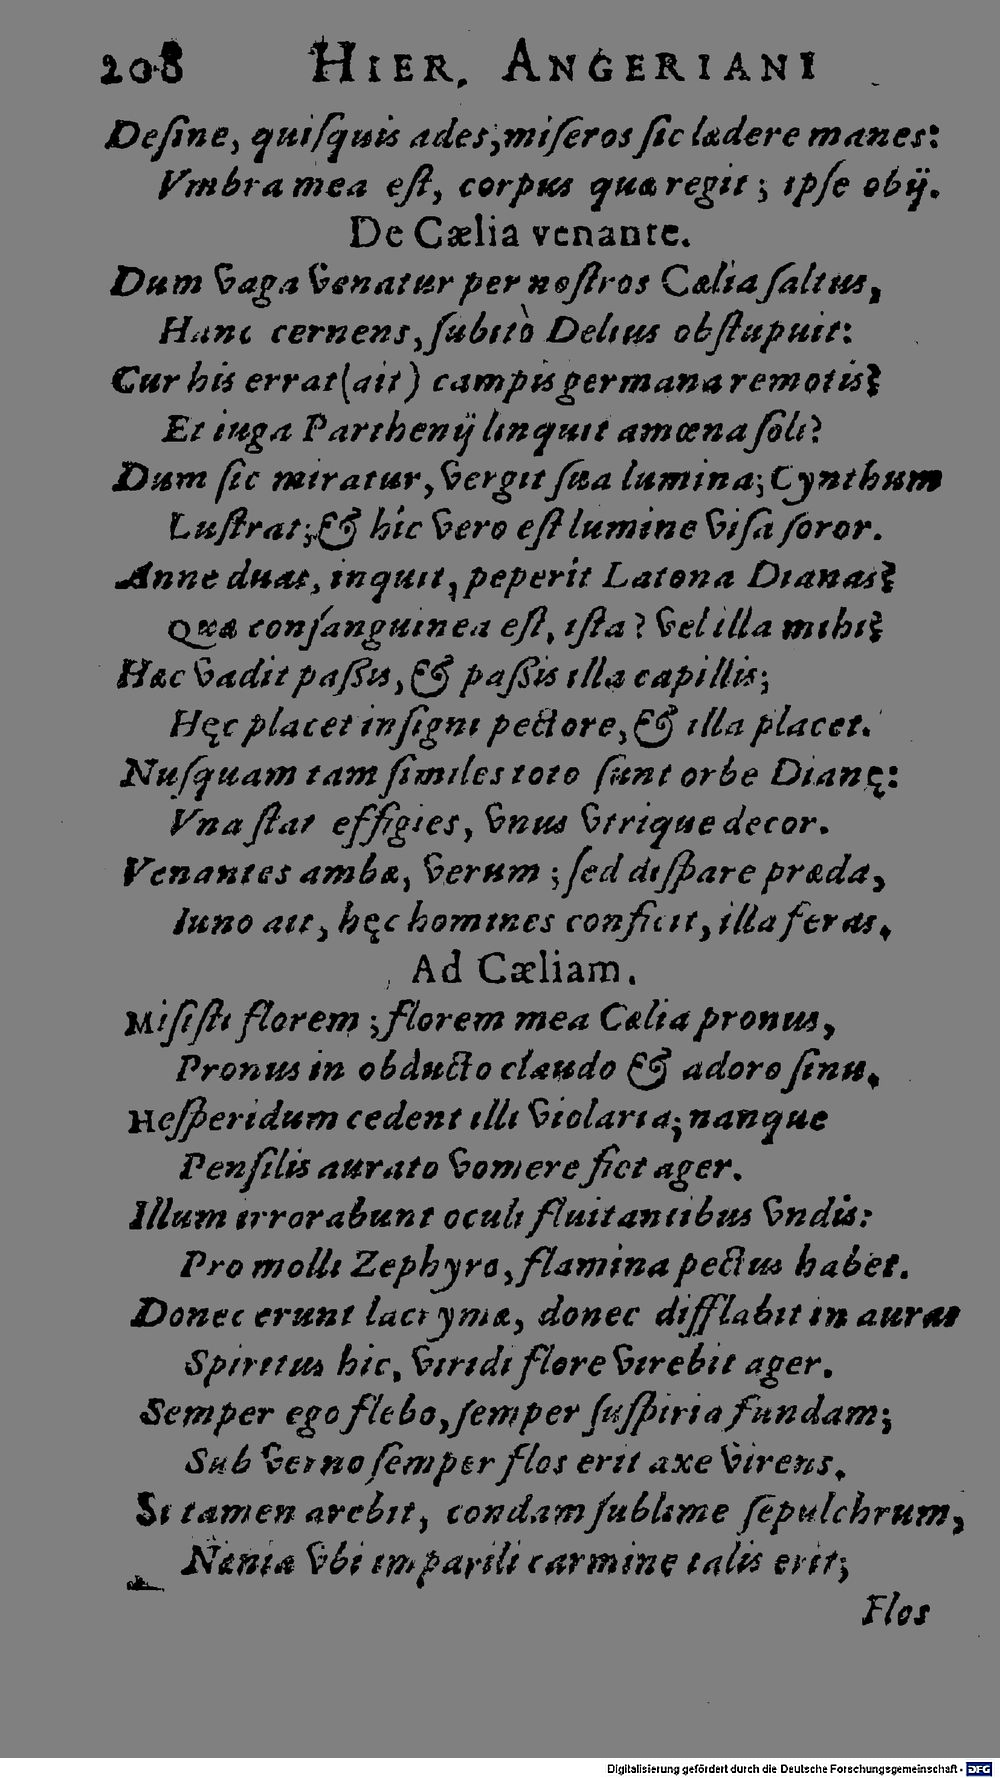 208 HIER. ANGERIANI
Desine, quisquis ades, miseros sic lædere manes:
Vmbra mea est, corpus quæ regit; ipse obij.
De Cælia venante.
Dum vaga venatur per nostros Cælia saltus,
Hanc cernens, subitò Delius obstupuit:
Cur his errat (ait) campis germana remotis?
Et iuga Parthenij linquit amœna soli?
Dum sic miratur, vergit sua lumina; Cynthum
Lustrat; & hic vero est lumine visa soror.
Anne duas, inquit, peperit Latona Dianas?
Quæ consanguinea est, ista? vel illa mihi?
Hæc vadit passis, & passis illa capillis;
Hęc placet insigni pectore, & illa placet.
Nusquam tam similes toto sunt orbe Dianę:
Vna stat effigies, vnus vtrique decor.
Venantes ambæ, verum; sed dispare præda,
Iuno ait, hęc homines conficit, illa feras.
Ad Cæliam.
Misisti florem; florem mea Cælia pronus,
Pronus in obducto claudo & adoro sinu.
Hesperidum cedent illi violaria; nanque
Pensilis aurato vomere fiet ager.
Illum irrorabunt oculi fluitantibus vndis:
Pro molli Zephyro, flamina pectus habet.
Donec erunt lacrymæ, donec difflabit in auras
Spiritus hic, viridi flore virebit ager.
Semper ego flebo, semper suspiria fundam;
Sub verno semper flos erit axe virens.
Si tamen arebit, condam sublime sepulchrum,
Nænia vbi imparili carmine talis erit;
Flos
Digitalisierung gefördert durch die Deutsche Forschungsgemeinschaft - DFG